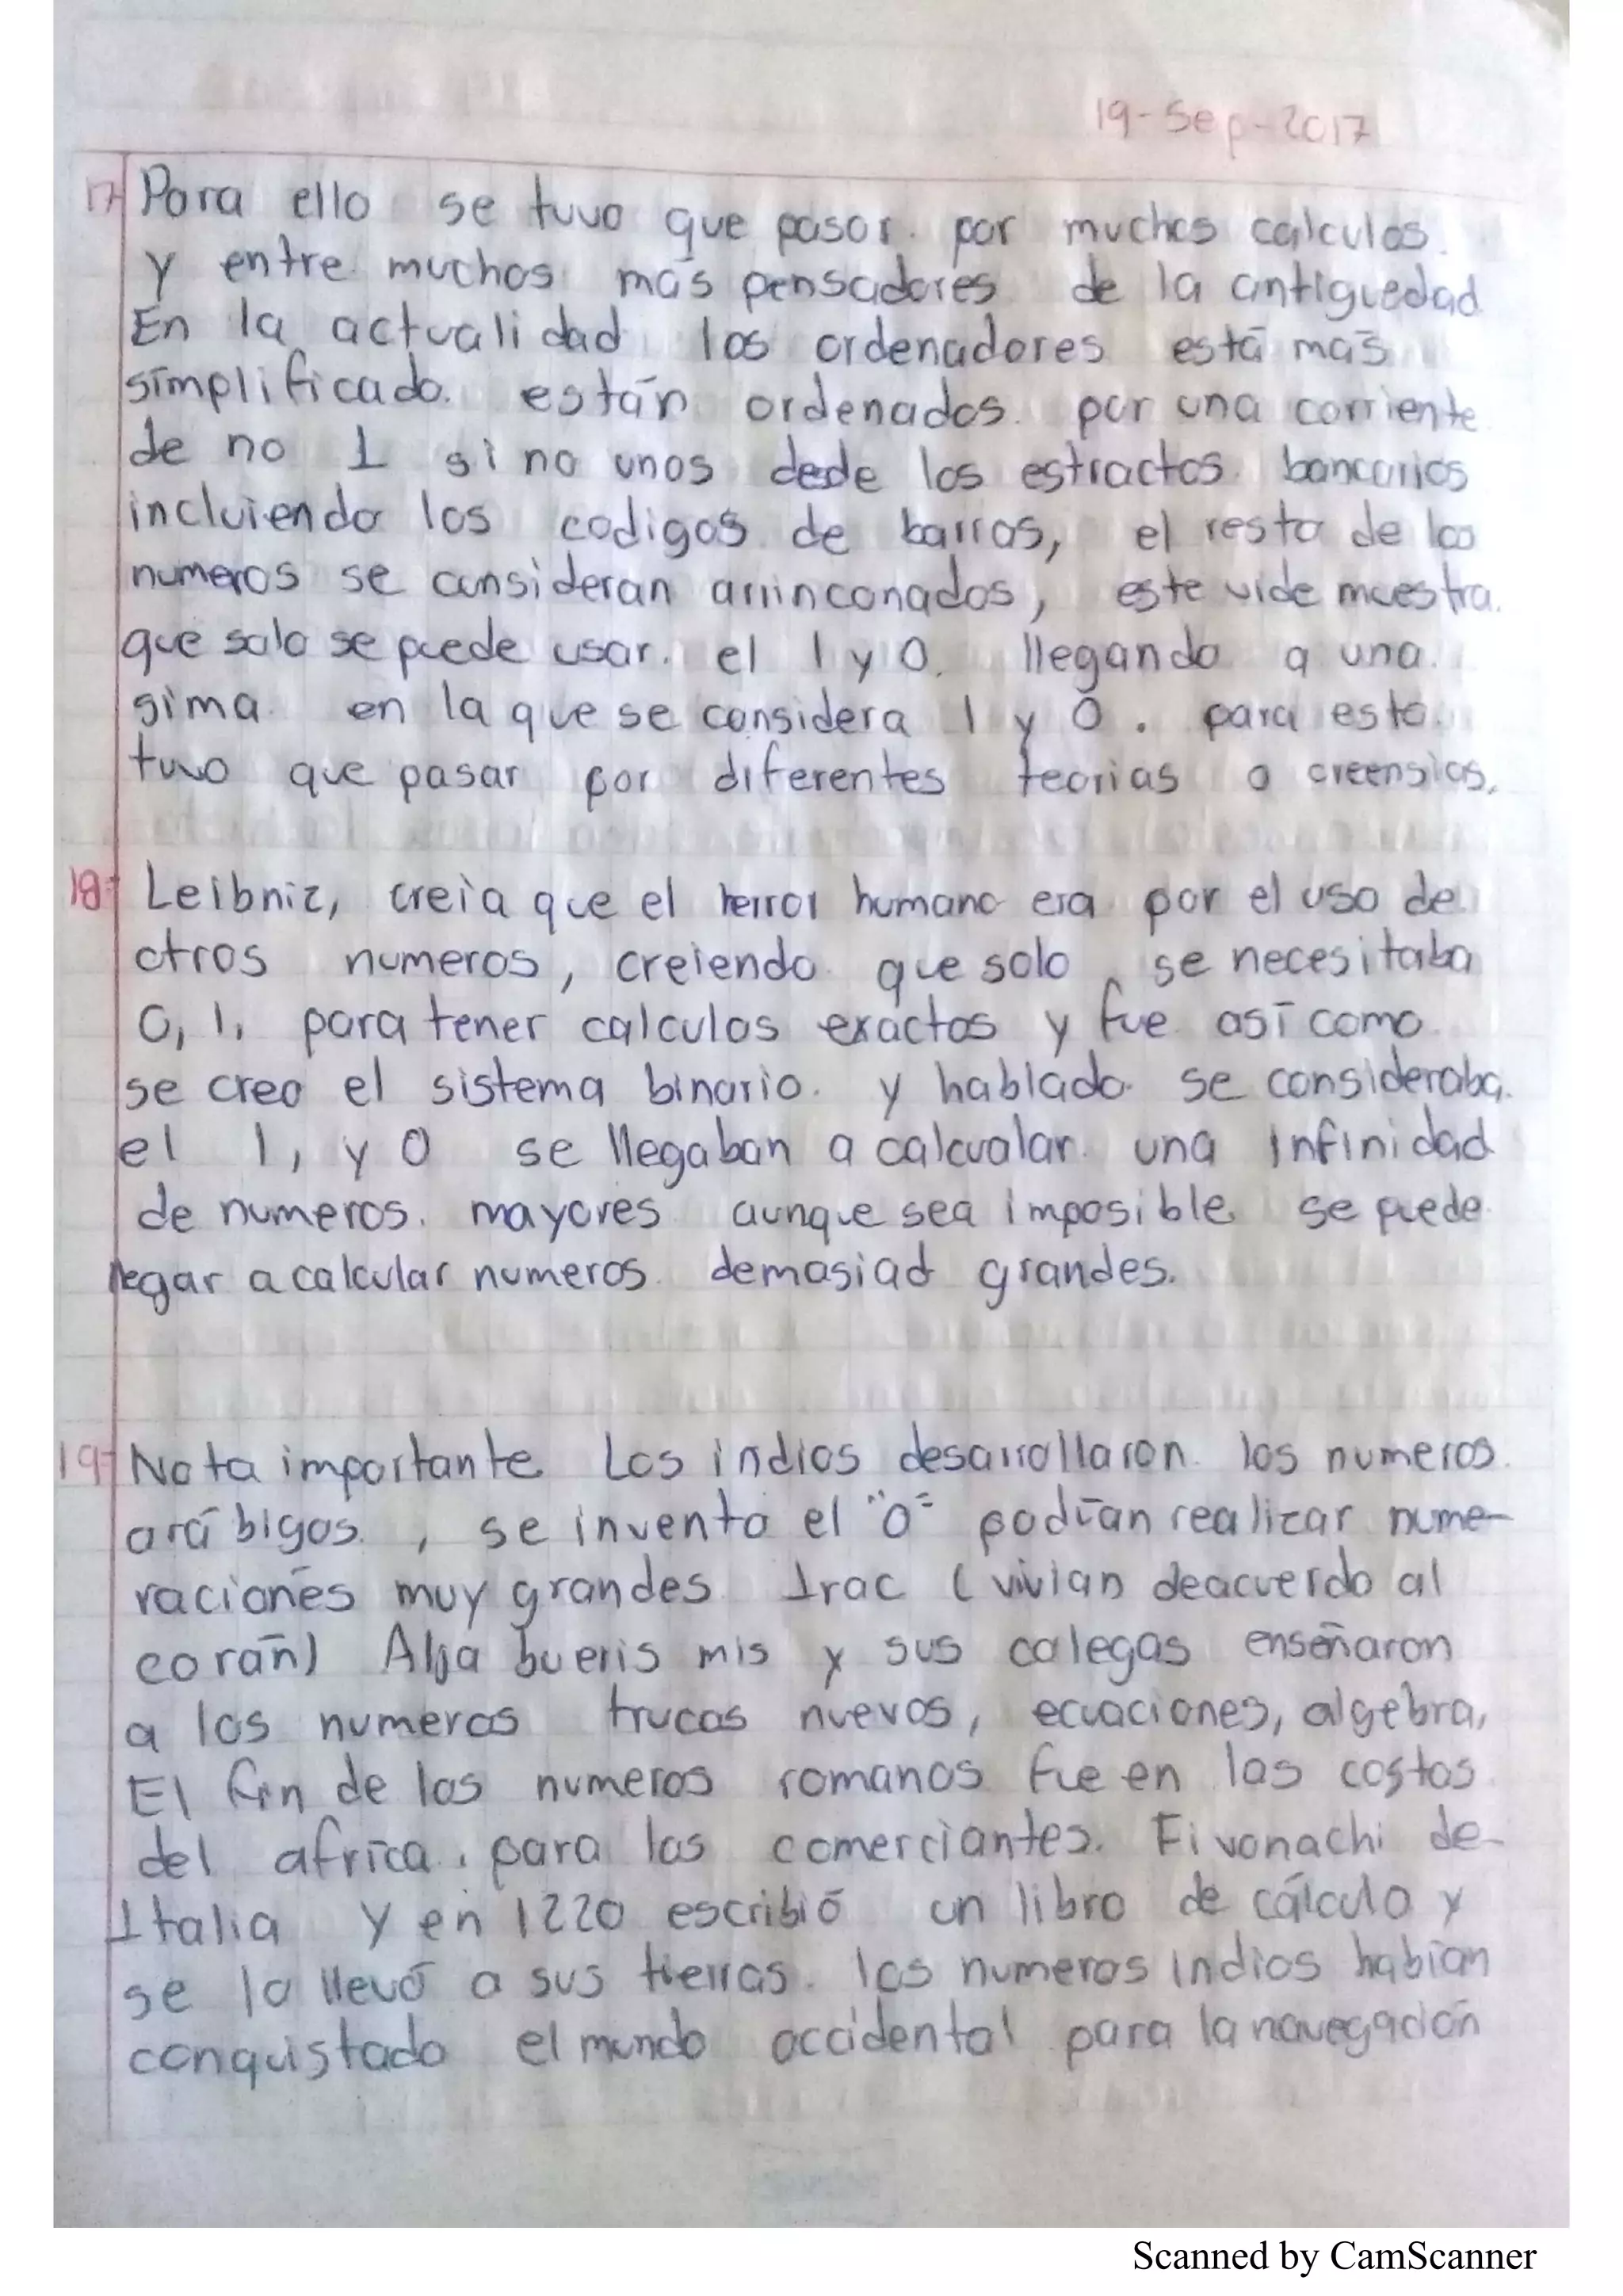 19-Sep-2017
17 Para ello se tuvo que pasar. por muchos calculos.
y entre muchos más pensadores de la antiguedad
En la actualidad los ordenadores está más
simplificado. están ordenados. por una corriente
de no 1 si no unos dede los estractos bancarios
incluiendo los codigos de barras, el resto de los
numeros se consideran arrinconados, este vide muestra.
que solo se puede usar. el 1 y 0. llegando a una.
sima en la que se considera 1 y 0. para esto.
tuvo que pasar por diferentes teorias o creensias.
18- Leibniz, creia que el herror humano era por el uso de
otros numeros, creiendo que solo se necesitaba
0, 1, para tener calculos exactos y fue así como
se creo el sistema binario. y hablado se consideraba.
el 1, y 0 se llegaban a calcualar una infinidad
de numeros. mayores aunque sea imposible se puede
llegar a calcular numeros demasiad grandes.
19- Nota importante Los indios desarrollaron los numeros
arábigos., se invento el "0" podían realizar nume-
raciones muy grandes Irac (vivian deacuerdo al
corán) bueris mis y sus colegas enseñaron
a los numeros trucos nuevos, ecuaciones, algebra,
El fin de los numeros romanos fue en las costas
del africa. para los comerciantes. Fivonachi de
Italia y en 1220 escribió un libro de cálculo y
se lo llevó a sus tierras. los numeros indios habían
conquistado el mundo occidental para la navegación
Scanned by CamScanner